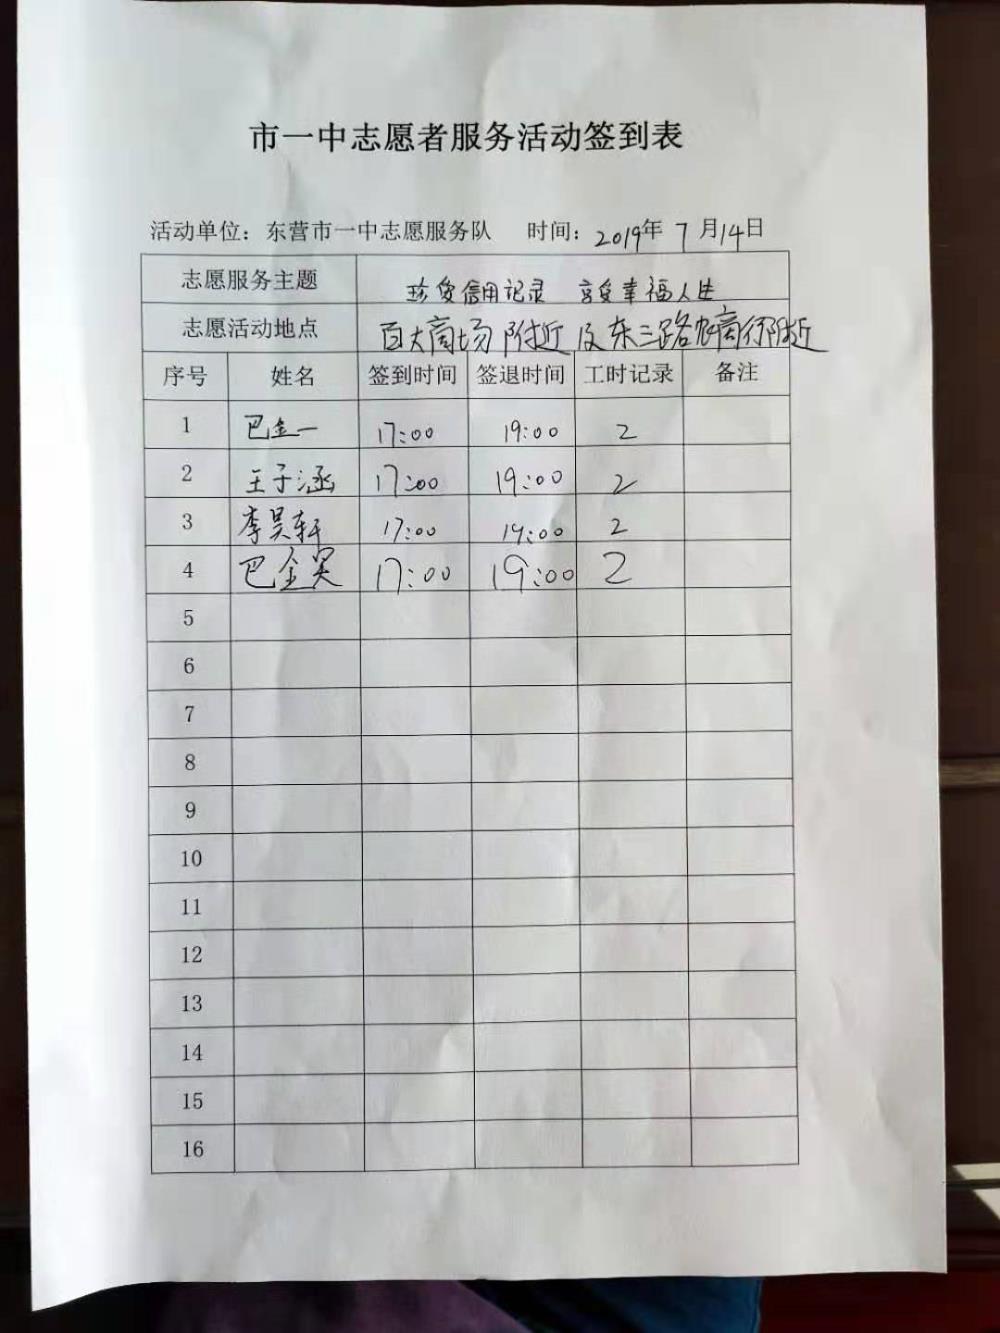 市一中志愿者服务活动签到表
活动单位：东营市一中志愿服务队 时间：2019年 7 月14日
志愿服务主题 珍爱信用记录 享受幸福人生
志愿活动地点 百大商场附近及东三路农商行附近
序号 姓名 签到时间 签退时间 工时记录 备注
1 巴金一 17:00 19:00 2
2 王子涵 17:00 19:00 2
3 李昊轩 17:00 19:00 2
4 巴金昊 17:00 19:00 2
5
6
7
8
9
10
11
12
13
14
15
16